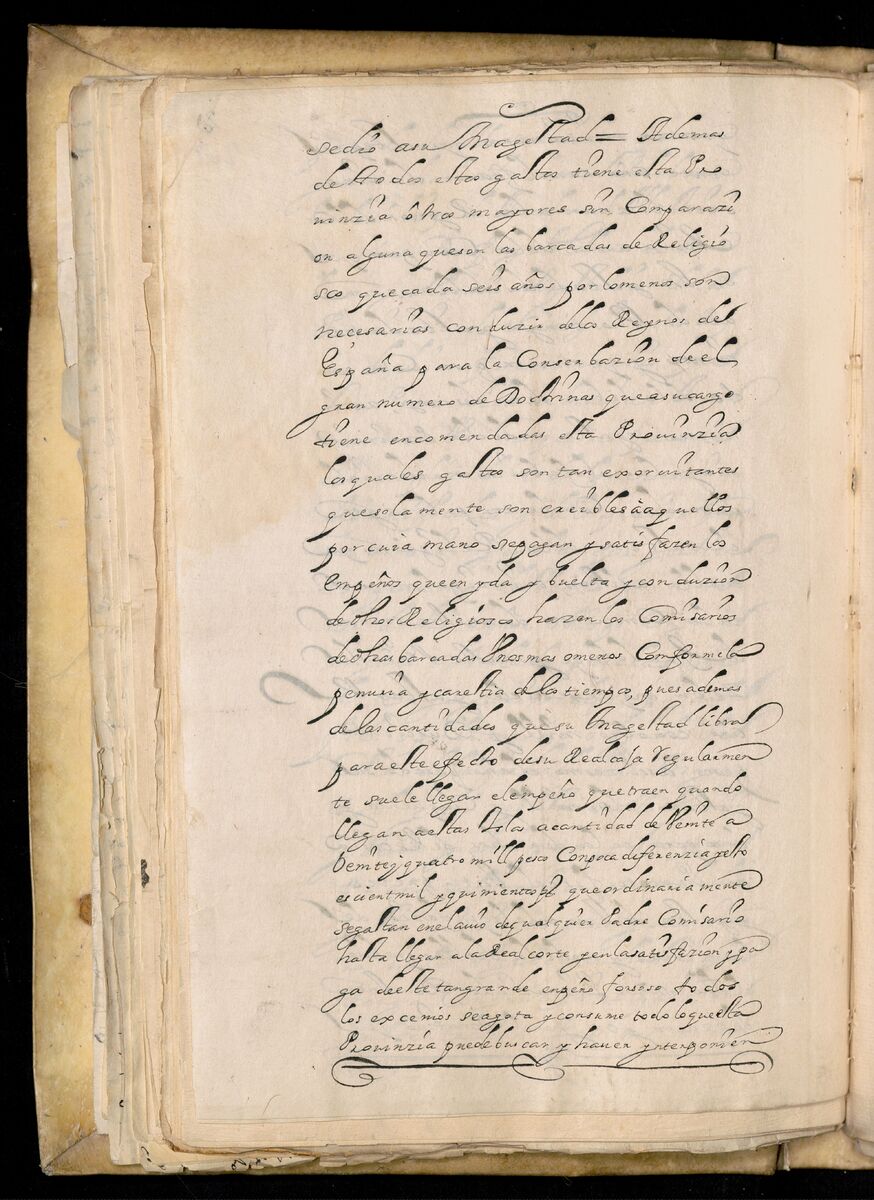 sedió asu Magestad = Ademas
de todos estos gastos tiene esta Pro
uinzia ótros mayores sin Comparazi
on alguna queson las barcadas de Religió
sos quecada seis años porlomenos son
necesarias conduzir delos Reynos de
España para la Conserbazion de el
gran numero de Doctrinas queasucargo
tiene encomendadas esta Prouinzia
losquales gastos son tan exorvitantes
quesolamente son creibles àaquellos
porcuia mano sepagan y satisfazen los
empeños queen yda y buelta y conduzion
dedhos Religiosos hazen los Comisarios
dedhas barcadas Unos mas omenos Conforme la
penuria y carestia delos tiempos, pues ademas
delas cantidades quesu Magestad libra
paraeste efecto desu Realcaja Regularmen
te suele llegar elempeño quetraen quando
llegan aestas Islas acantidad de Veinte a
Veinteyquatro mill pesos Conpoca diferenzia yesto
es cient mil y quinientos ps queordinariamente
segastan enelauio dequalquier Padre Comisario
hasta llegar ala Real corte yenlasatisfazion y pa
ga deeste tangrande enpeño forsoso todos
los excenios seagota y consume todo loquesta
Prouinzia puede buscar y hauer ynterponier